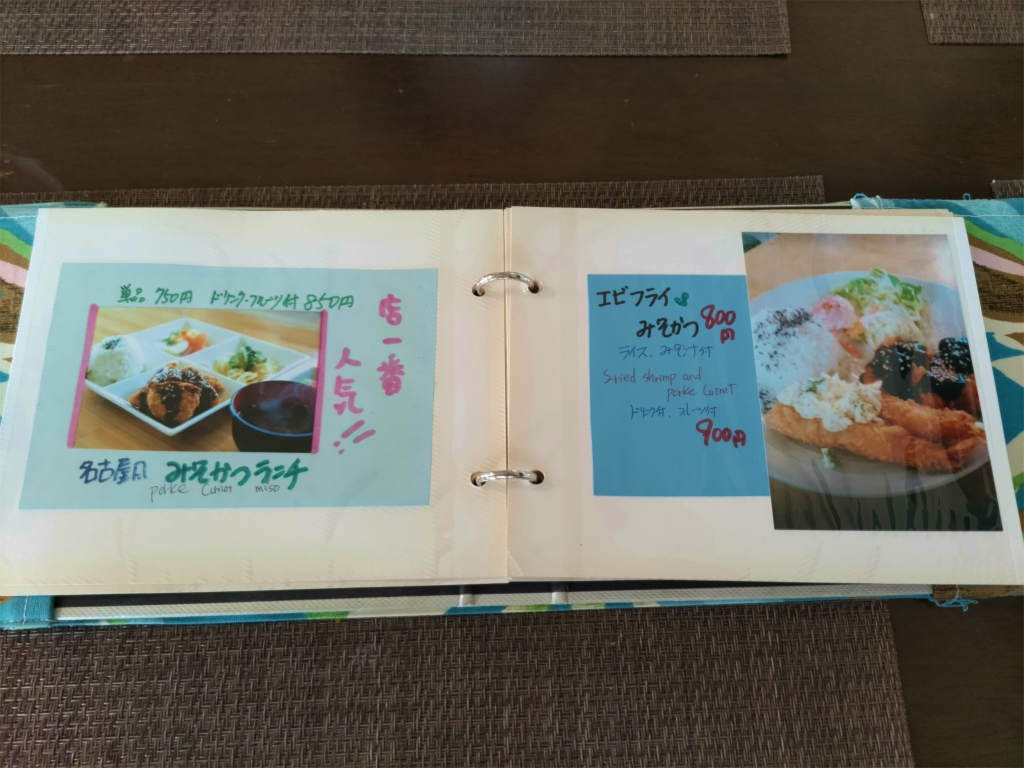 単品 750円 ドリンク・フルーツ付 850円
店一番
人気!!
名古屋風 みそかつランチ
porke Cutret miso
エビフライ
みそかつ 800円
ライス、みそ汁付
Suried shrimp and
porke Cutret
ドリンク付、フルーツ付
900円